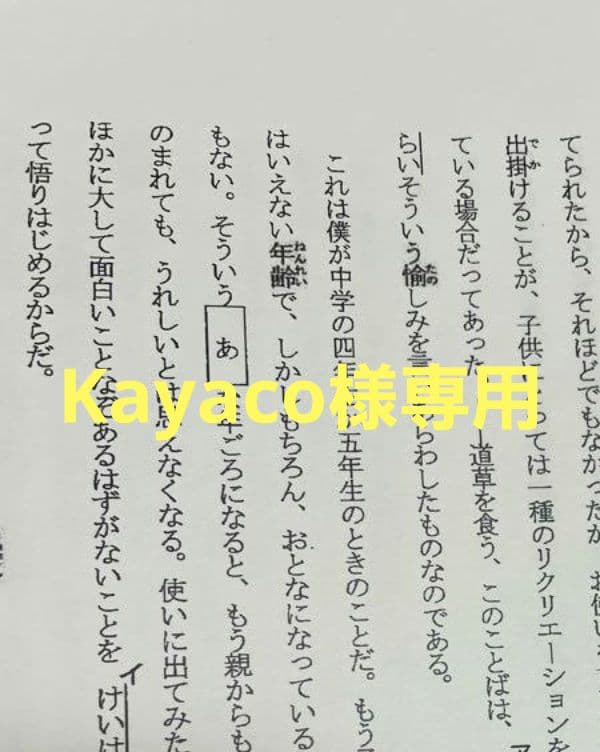 てられたから、それほどでもなかったが、お使い
出掛けることが、子供 っては一種のリクリエーションを
でか
ている場合だってあった 道草を食う、このことばは、
ア
らいそういう愉しみを言 らわしたものなのである。
たの
これは僕が中学の四年 五年生のときのことだ。もう
はいえない年齢で、しかしもちろん、おとなになっている
ねんれい
もない。そういう あ 年ごろになると、もう親からも
のまれても、うれしいとは思えなくなる。使いに出てみた
ほかに大して面白いことなぞあるはずがないことを
イ
けいけ
って悟りはじめるからだ。
Kayaco様専用